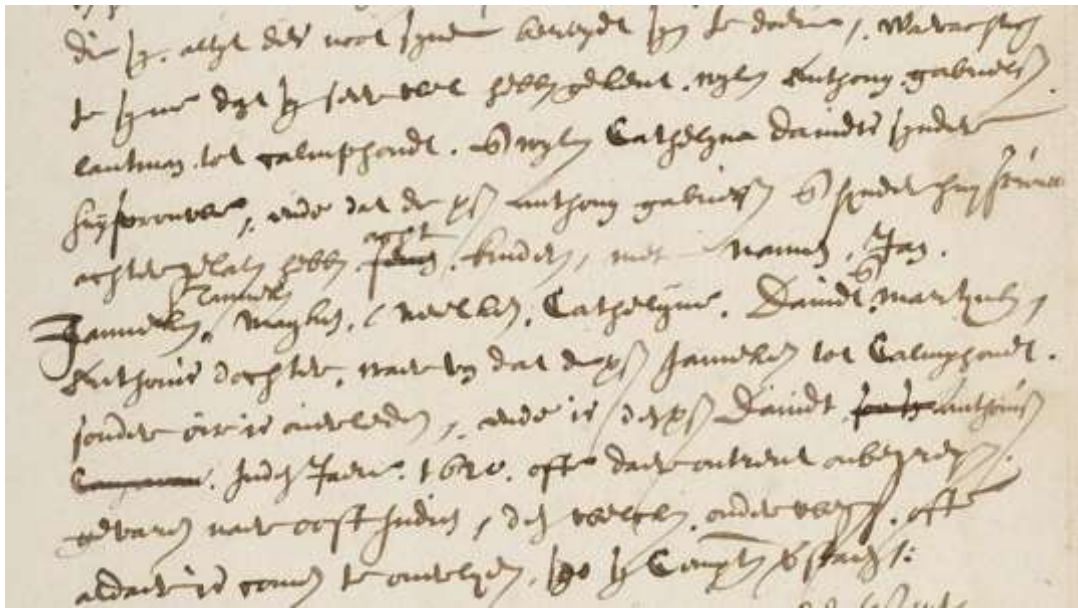 die sy altyt des noot synde bereydt syn te doen, warachtich
te syne dat sy seer wel hebben gekent wylen Anthony gabriels
lantman tot calmphoudt. en wylen Cathelyna Davidts synder
huysvrouwe, ende dat de vs anthony gabriels en synder huysvrouwe
achter gelaten hebben acht kinderen, met namen, Jan,
Tanneken
Janneken, Mayken, Neelken, Cathelyne, David, en Martynken,
Anthonis dochter, waer van dat de vs Janneken tot Calmphoudt.
sonder oir is overleden, ende is de vs David anthonis
Inden Jaere 1620. oft daer ontrent onbegrepen
gevaren naer oost Indien, den welcken onder wegen, oft
aldaer is comen te overlyden, soo sy Compten verstaen: